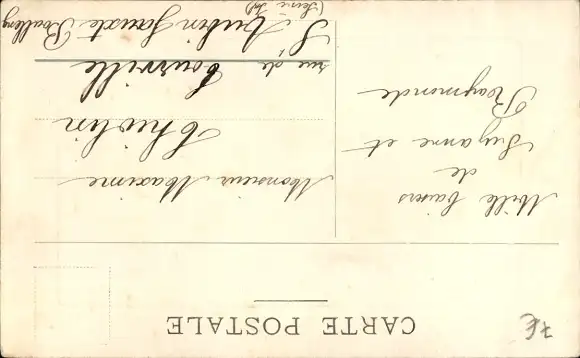 CARTE POSTALE
Mille baisers
de
Suzanne et
Raymonde
Monsieur Maxime
Thiolin
rue de Tourville
St Aubin Jouxte Boulleng
(Seine Inf)